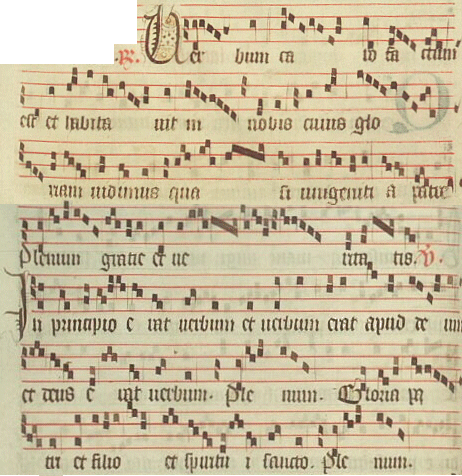 ℟. Verbum ca ro fa ctum
est et habita vit in nobis cuius glo
riam vidimus qua si unigeniti a patre
Plenum gratie et ve rita tis. ℣.
In principio e rat verbum et verbum erat apud de um
et deus e rat verbum. Ple num. Gloria pa
tri et filio et spiritu i sancto. Ple num.